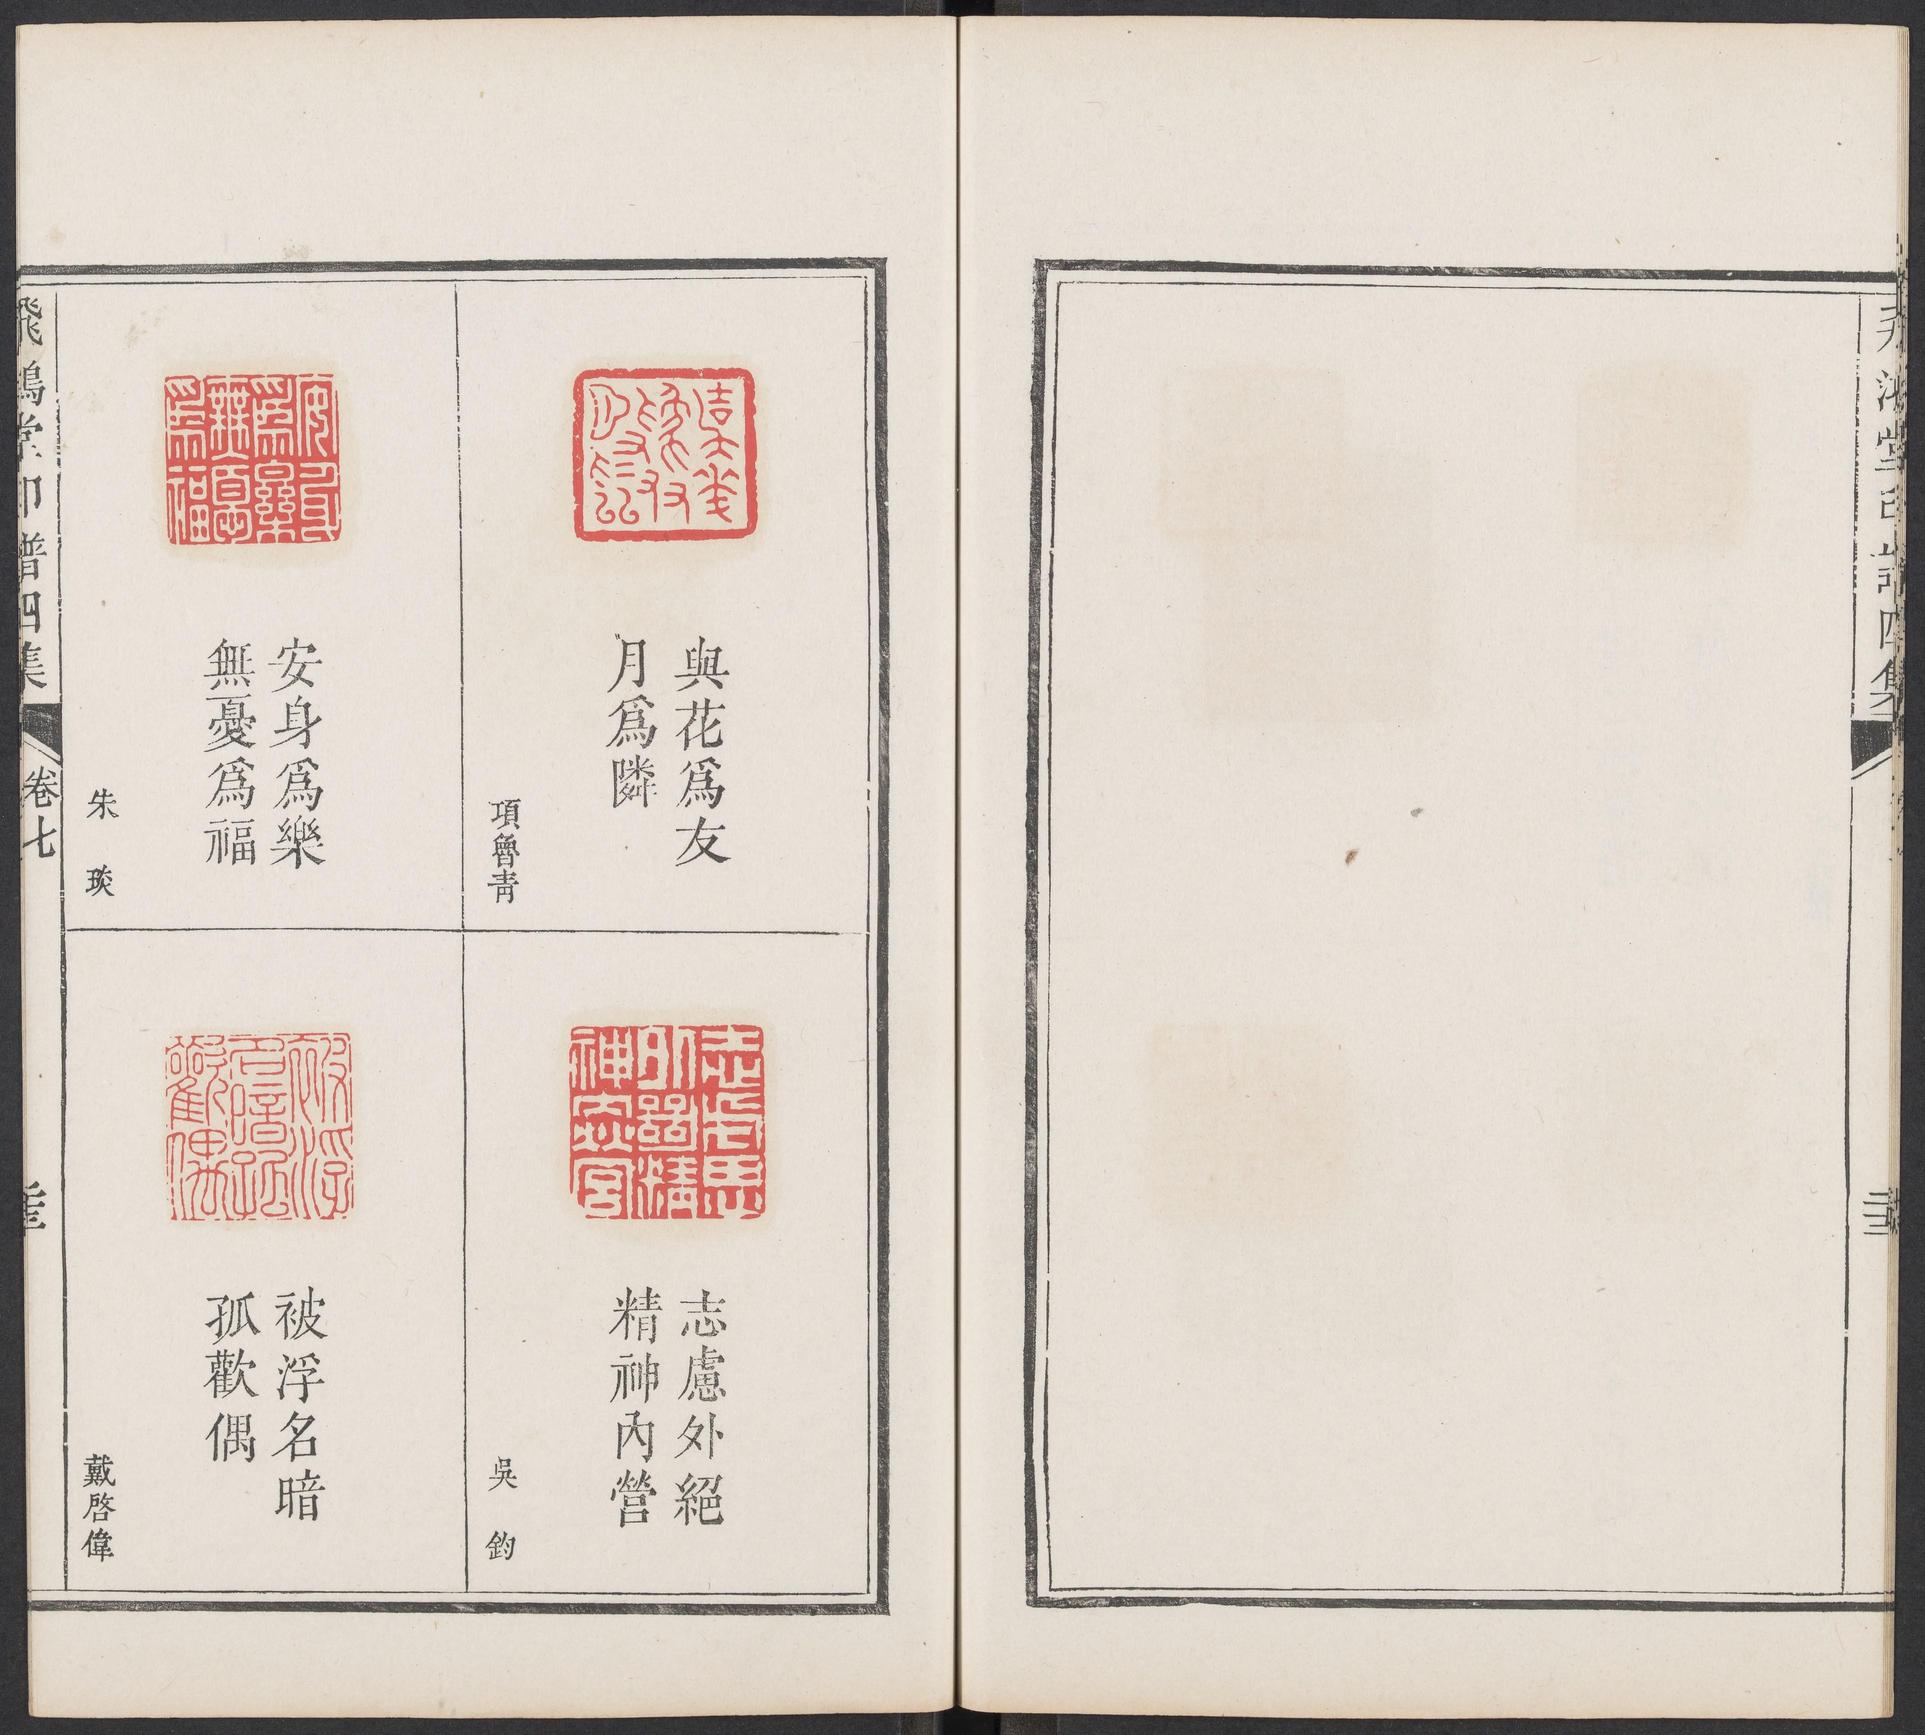 與花爲友
月爲隣
項魯青
志慮外絕
精神內營
吳鈞
安身爲樂
無憂爲福
朱琰
被浮名暗
孤歡偶
戴啓偉
飛鴻堂印譜四集
卷七